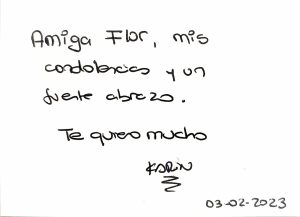 Amiga Flor, mis
condolencias y un
fuerte abrazo.
Te quiero mucho
KARIN
03-02-2023